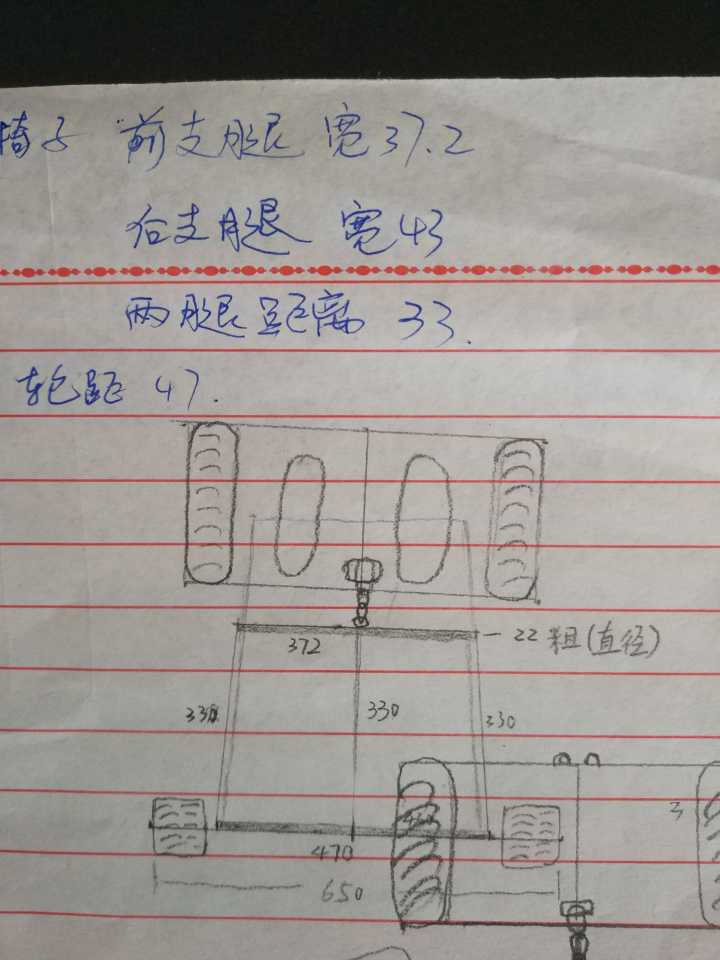 椅子 前支腿 宽37.2
后支腿 宽43
两腿距离 33.
轮距 47.
372
22 粗(直径)
330
330
330
3
470
650